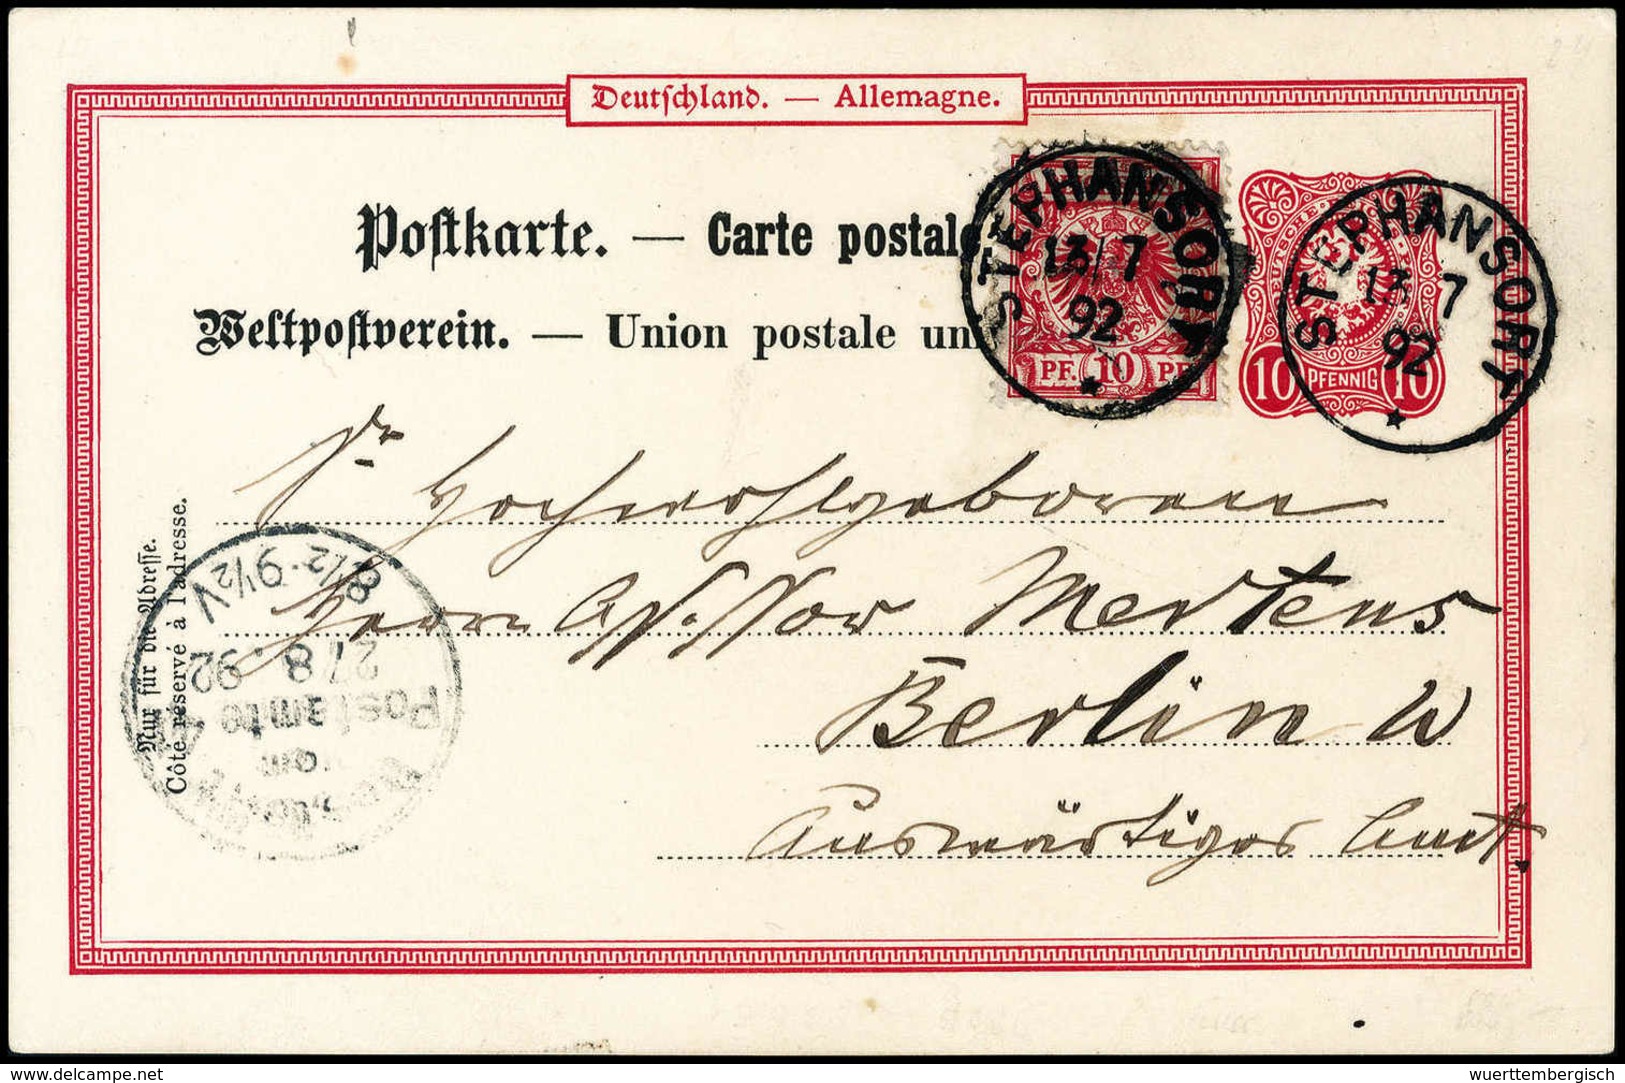 Deutschland. — Allemagne.
Postkarte. — Carte postale
Weltpostverein. — Union postale un
STEPHANSORT
13/7
92
PF. 10 PF.
STEPHANSORT
13 7
92
DEUTSCHE
10 PFENNIG 10
Sr Hochwohlgeboren
Herrn Assessor Mertens
Berlin W
Auswärtiges Amt.
Nur für die Adresse.
Côté réservé à l'adresse.
8½-9½V
27 8. 92
Postamte
vom
wuerttembergisch